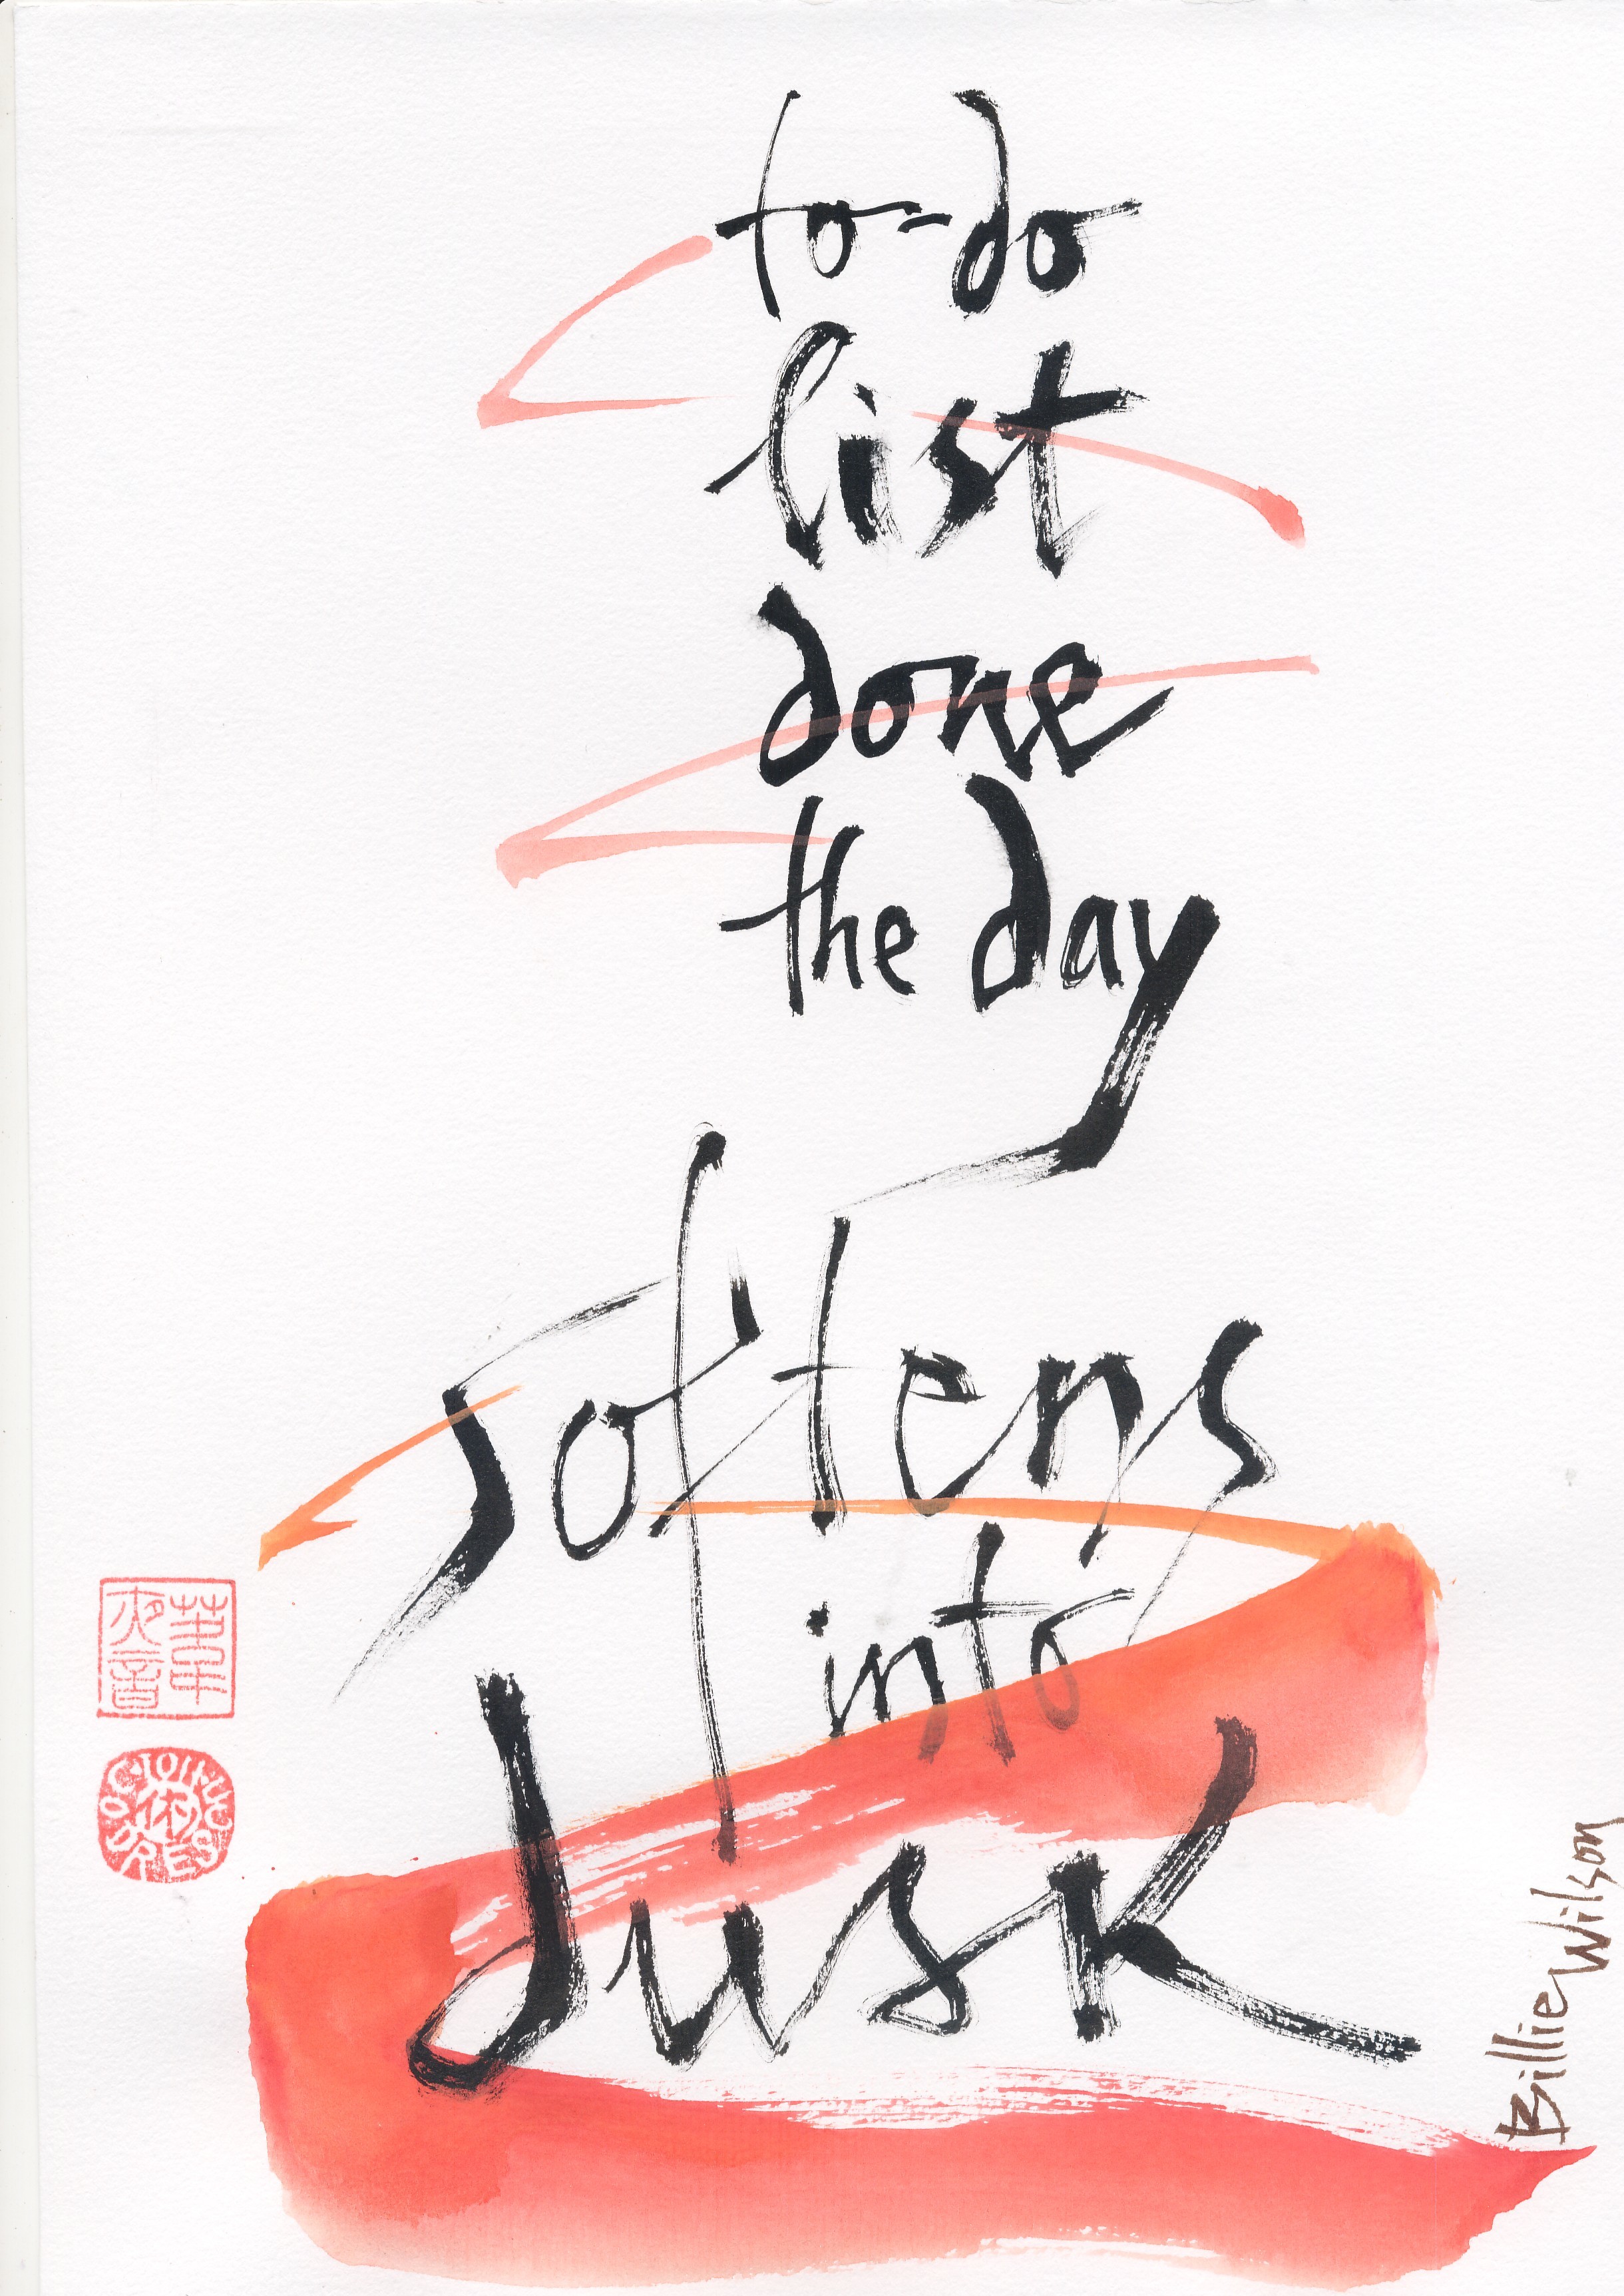 to-do
list
done
the day
softens
into
dusk
Billie Wilson